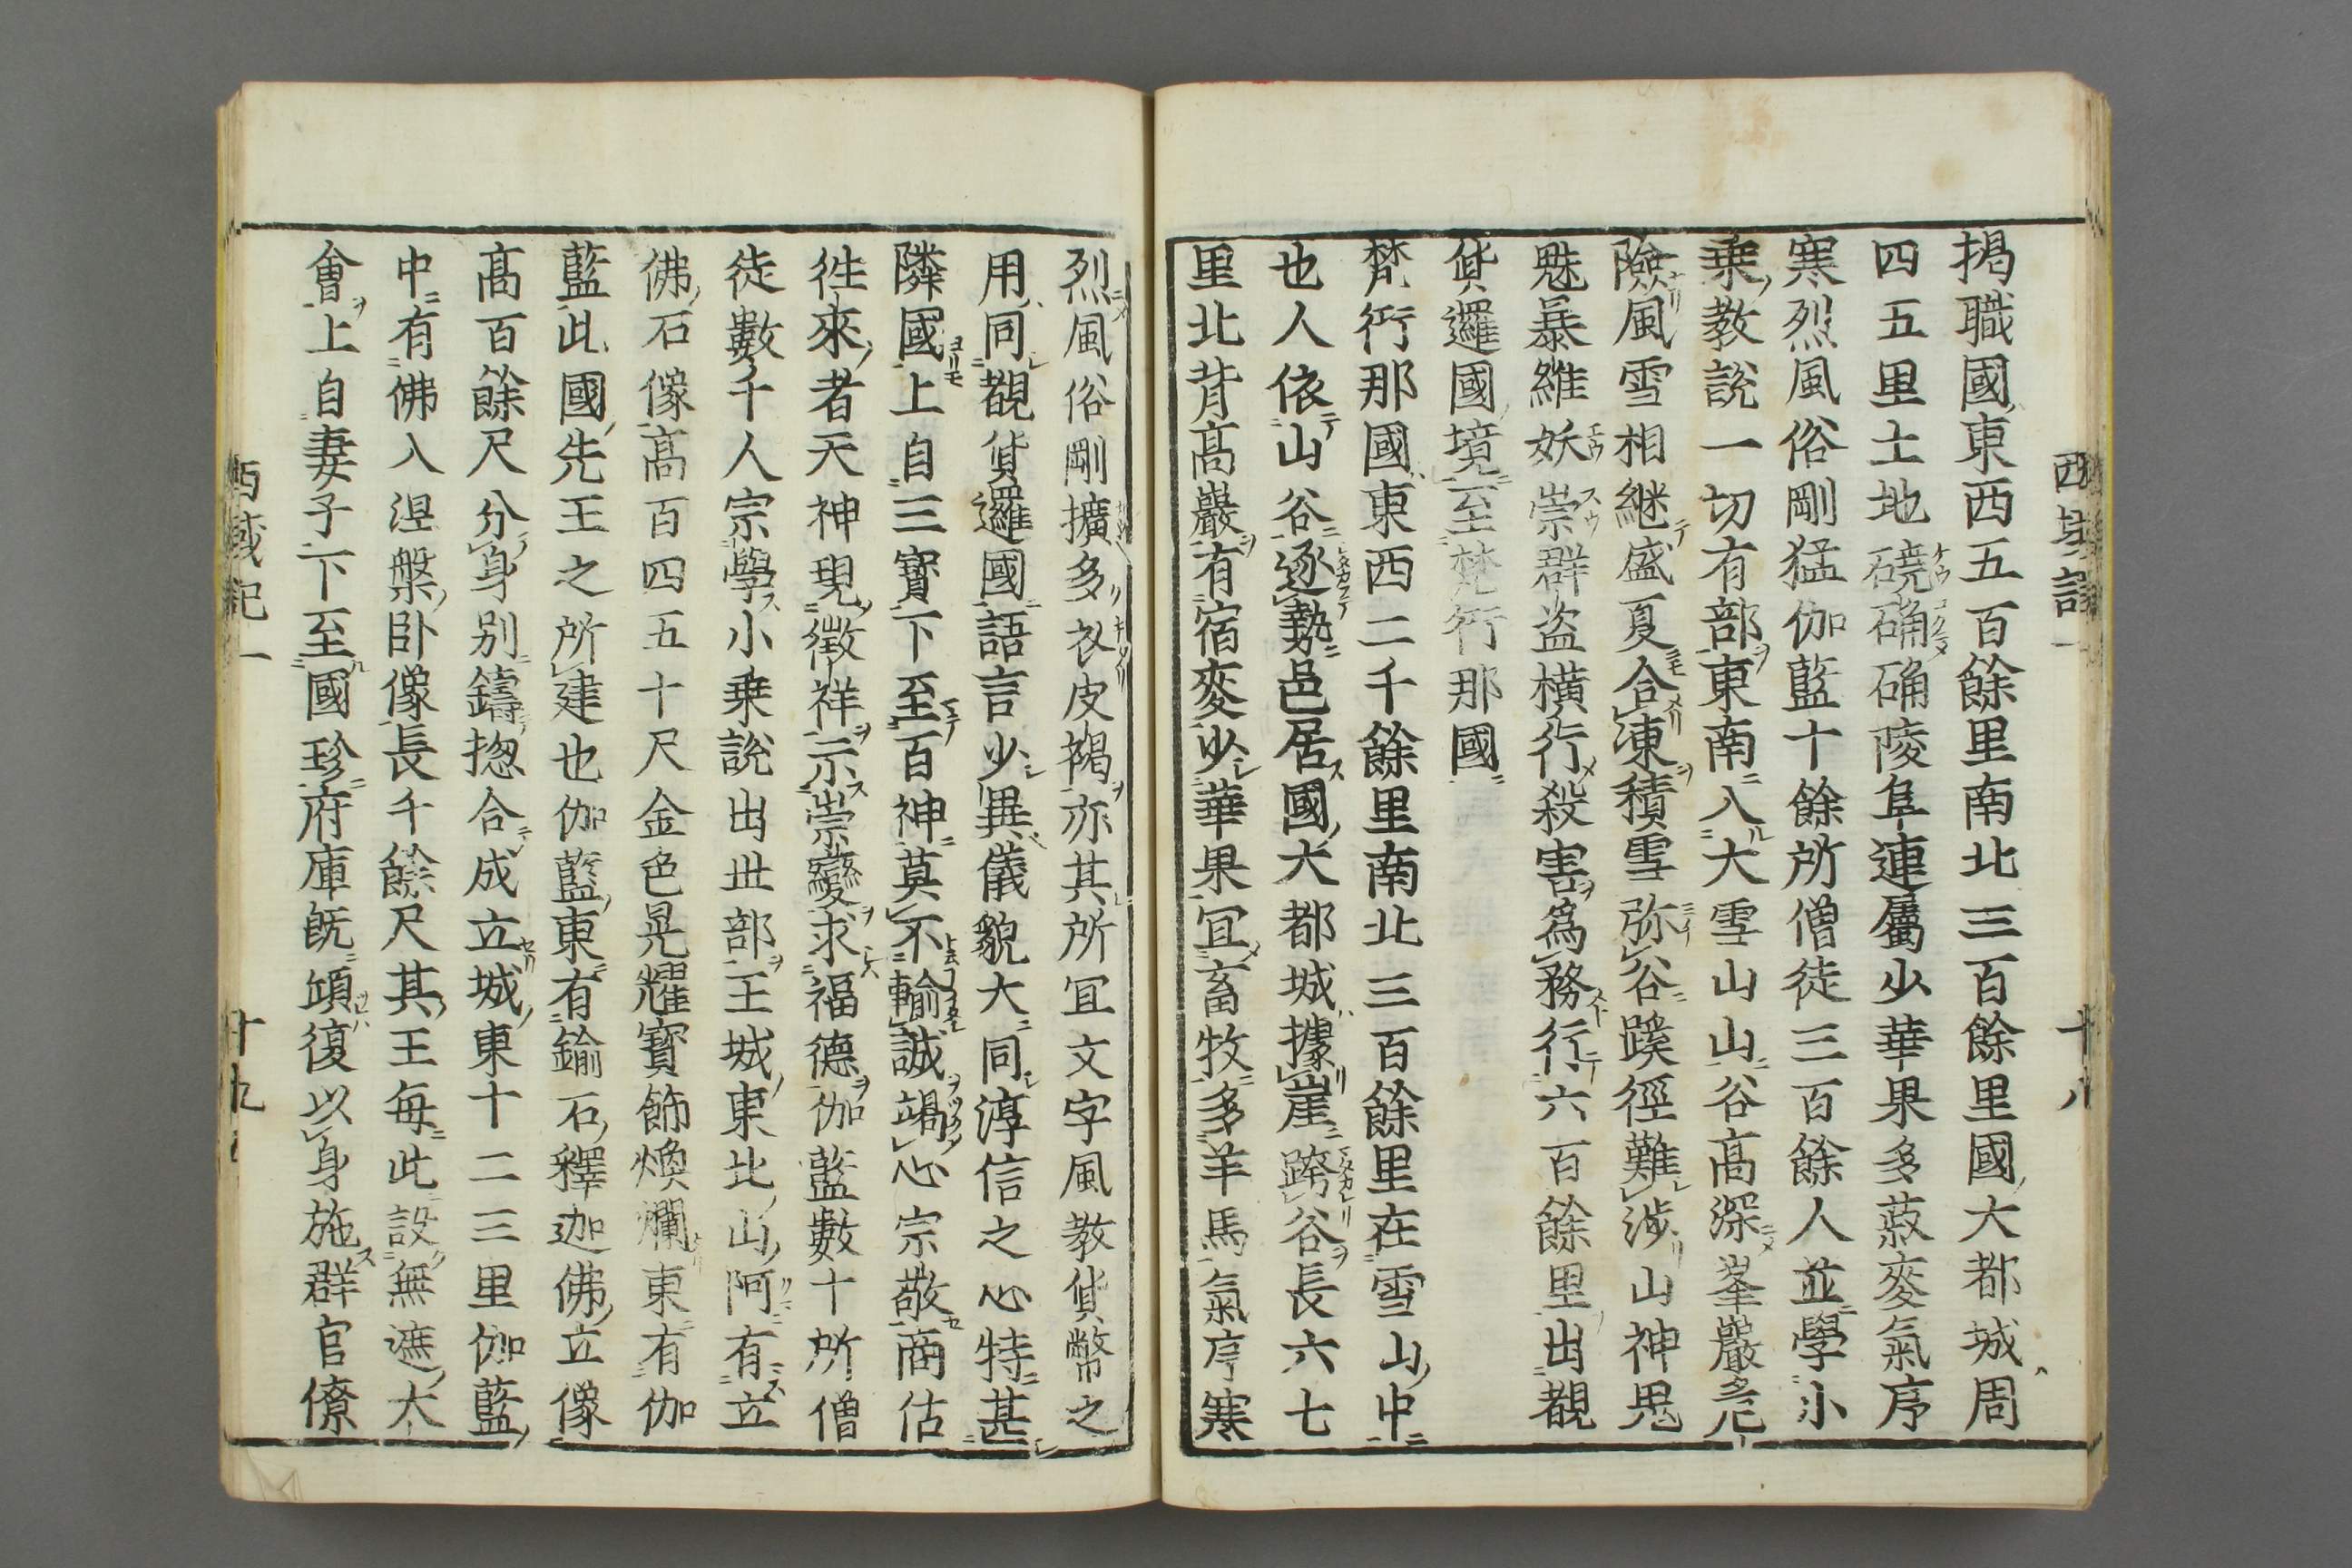 西域記一 十八
揭職國東西五百餘里南北三百餘里國大都城周
四五里土地磽确确陵阜連屬少華果多菽麥氣序
寒烈風俗剛猛伽藍十餘所僧徒三百餘人並學小
乗教說一切有部東南入大雪山山谷高深峯巖危
險風雪相継盛夏合凍積雪弥谷蹊徑難渉山神鬼
魅暴縱妖祟群盗橫行殺害爲務行六百餘里出覩
貨邏國境至梵衍那國
梵衍那國東西二千餘里南北三百餘里在雪山中
也人依山谷逐勢邑居國大都城據崖跨谷長六七
里北背高巖有宿麥少華果宜畜牧多羊馬氣序寒
烈風俗剛擴多衣皮褐亦其所宜文字風教貨幣之
用同覩貨邏國語言少異儀貌大同淳信之心特甚
隣國上自三寶下至百神莫不輸誠竭心宗敬商估
徃來者天神現徵祥示崇變求福德伽藍數十所僧
徒數千人宗學小乗說出世部王城東北山阿有立
佛石像高百四五十尺金色晃耀寶飾煥爛東有伽
藍此國先王之所建也伽藍東有鍮石釋迦佛立像
高百餘尺分身別鑄揔合成立城東十二三里伽藍
中有佛入涅槃卧像長千餘尺其王每此設無遮大
會上自妻子下至國珍府庫既頃復以身施群官僚
西域記一 十九